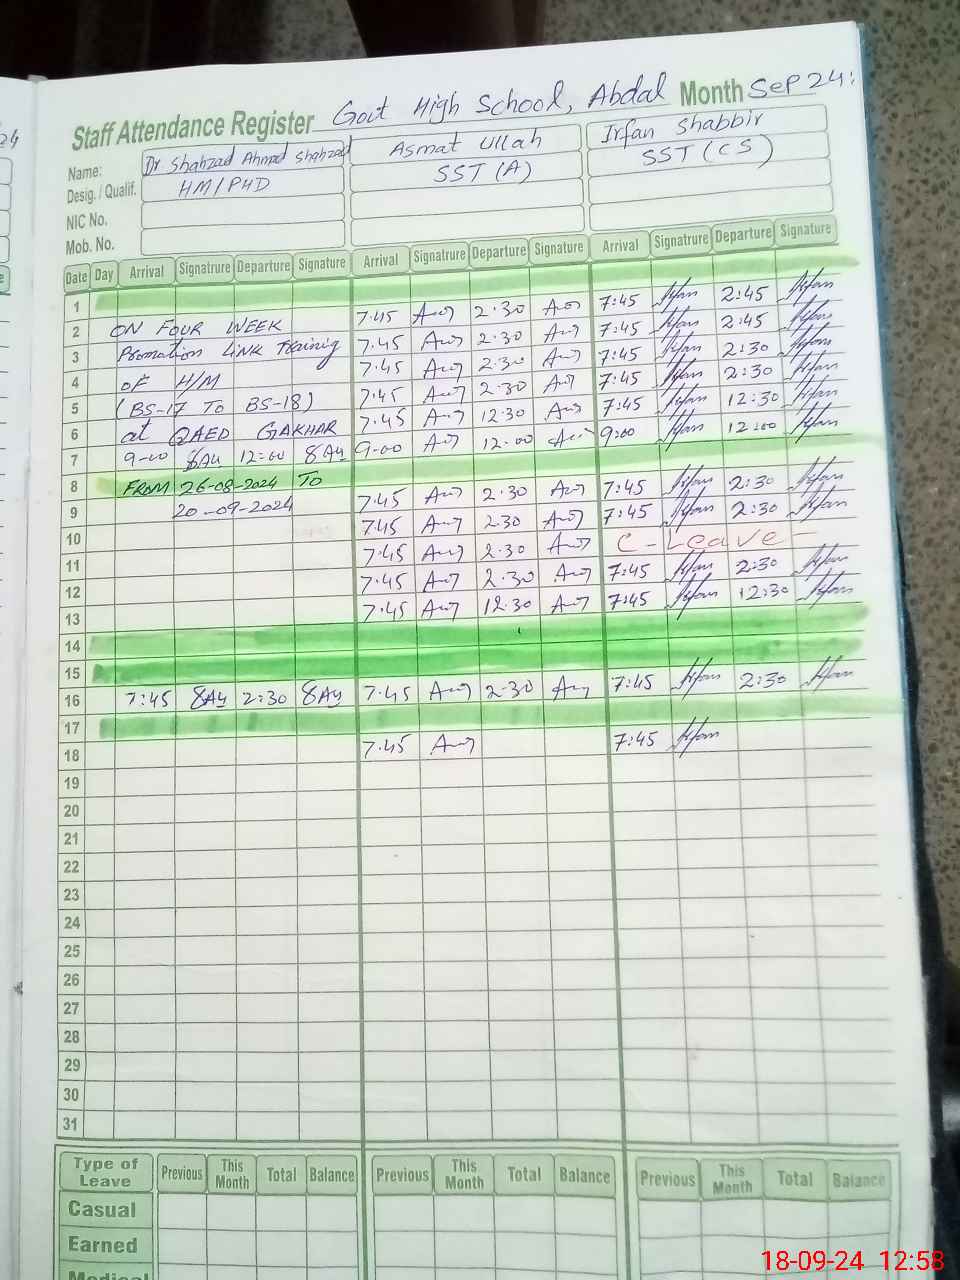 24
Staff Attendance Register Govt High School, Abdal Month Sep 24:
Name: Dr Shahzad Ahmad Shahzad Asmat Ullah Irfan Shabbir
Desig. / Qualif. HM/PHD SST (A) SST (CS)
NIC No.
Mob. No.
Date Day Arrival Signatrure Departure Signature Arrival Signatrure Departure Signature Arrival Signatrure Departure Signature
1
2 ON FOUR WEEK 7:45 2:30 7:45 Irfan 2:45 Irfan
3 Promotion LINK Training 7:45 2:30 7:45 Irfan 2:45 Irfan
4 of H/M 7:45 2:30 7:45 Irfan 2:30 Irfan
5 (BS-17 To BS-18) 7:45 2:30 7:45 Irfan 2:30 Irfan
6 at QAED GAKHAR 7:45 12:30 7:45 Irfan 12:30 Irfan
7 9-00 12:00 9-00 12:00 9:00 Irfan 12:00 Irfan
8 FROM 26-08-2024 TO
9 20-09-2024 7:45 2:30 7:45 Irfan 2:30 Irfan
10 7:45 2:30 7:45 Irfan 2:30 Irfan
11 7:45 2:30 C-Leave-
12 7:45 2:30 7:45 Irfan 2:30 Irfan
13 7:45 12:30 7:45 Irfan 12:30 Irfan
14
15
16 7:45 2:30 7:45 2:30 7:45 Irfan 2:30 Irfan
17
18 7:45 7:45 Irfan
19
20
21
22
23
24
25
26
27
28
29
30
31
Type of Leave Previous This Month Total Balance Previous This Month Total Balance Previous This Month Total Balance
Casual
Earned
Medical
18-09-24 12:58